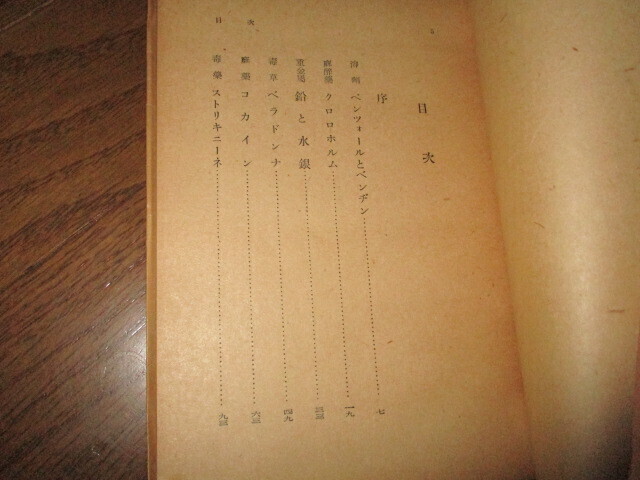 目次
目次
序
溶剤 ベンツォールとベンヂン……七
麻酔薬 クロロホルム……一九
重金属 鉛と水銀……三三
毒草 ベラドンナ……四九
麻薬 コカイン……六三
毒薬 ストリキニーネ……九三